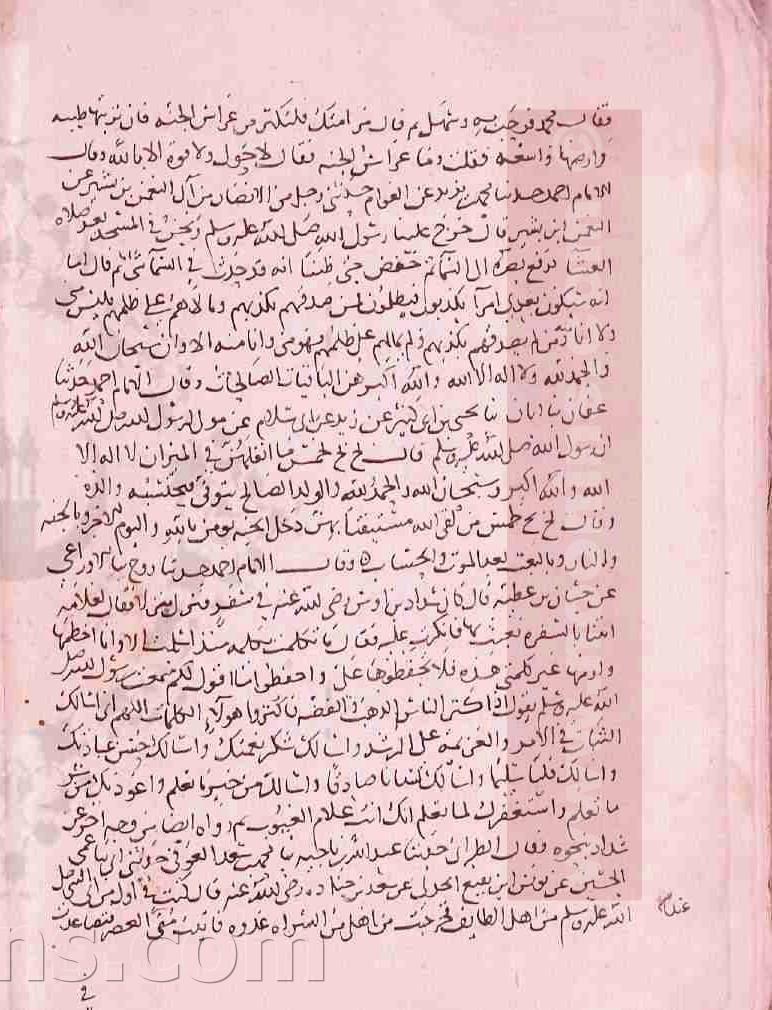 فقال محمد فرحب بي وسهل ثم قال مر امتك فلتكثر من غراس الجنة فان تربتها طيبة
وارضها واسعة فقلت وما غراس الجنة فقال لا حول ولا قوة الا بالله وقال
الامام احمد حدثنا محمد بن يزيد عن العوام حدثني رجل من الانصار من آل النعمن بن بشير عن
النعمن ابن بشير قال خرج علينا رسول الله صلى الله عليه وسلم ونحن في المسجد بعد صلاة
العشا فرفع بصره الى السما ثم خفض حتى ظننا انه قد حدث في السما شي ثم قال اما
انه سيكون بعدي امرآ يكذبون ويظلمون فمن صدقهم بكذبهم ومالاهم على ظلمهم فليس مني
ولا انا منه ومن لم يصدقهم بكذبهم ولم يمالهم على ظلمهم فهو مني وانا منه الا وان سبحان الله
والحمد لله ولا اله الا الله والله اكبر هن الباقيات الصالحات وقال الامام احمد حدثنا
عفان نا ابان نا يحيى بن ابي كثير عن زيد عن ابي سلام عن مولى لرسول الله صلى الله عليه وسلم
ان رسول الله صلى الله عليه وسلم قال بخ بخ لخمس ما اثقلهن في الميزان لا اله الا
الله والله اكبر وسبحان الله والحمد لله والولد الصالح يتوفى فيحتسبه والده
وقال بخ بخ لخمس من لقي الله مستيقنا بهن دخل الجنة يومن بالله واليوم الاخر وبالجنة
والنار وبالبعث بعد الموت والحساب وقال الامام احمد حدثنا روح نا الاوزاعي
عن حسان بن عطية قال كان شداد بن اوس رضي الله عنه في سفر فنزل منزلا فقال لغلامه
ائتنا بالسفرة نعبث بها فانكرت عليه فقال ما تكلمت بكلمة منذ اسلمت الا وانا اخطمها
وازمها غير كلمتي هذه فلا تحفظوها علي واحفظوا ما اقول لكم سمعت رسول الله صلى
الله عليه وسلم يقول اذا كنز الناس الذهب والفضة فاكنزوا هولاء الكلمات اللهم اني اسالك
الثبات في الامر والعزيمة على الرشد واسالك شكر نعمتك واسالك حسن عبادتك
واسالك قلبا سليما واسالك لسانا صادقا واسالك من خير ما تعلم واعوذ بك من شر
ما تعلم واستغفرك لما تعلم انك انت علام الغيوب ثم رواه ايضا من وجه اخر عن
شداد بنحوه وقال الطبراني حدثنا عبد الله بن ناجية نا محمد بن سعد العوفي حدثني ابي نا عمي
الحسين عن يونس ابن نفيع الجدلي عن سعد بن جنادة رضي الله عنه قال كنت في اول من اتى النبي صلى
الله عليه وسلم من اهل الطايف فخرجت من اهلي من السراه غدوة فاتيت منى العصر فتصاعدت
في